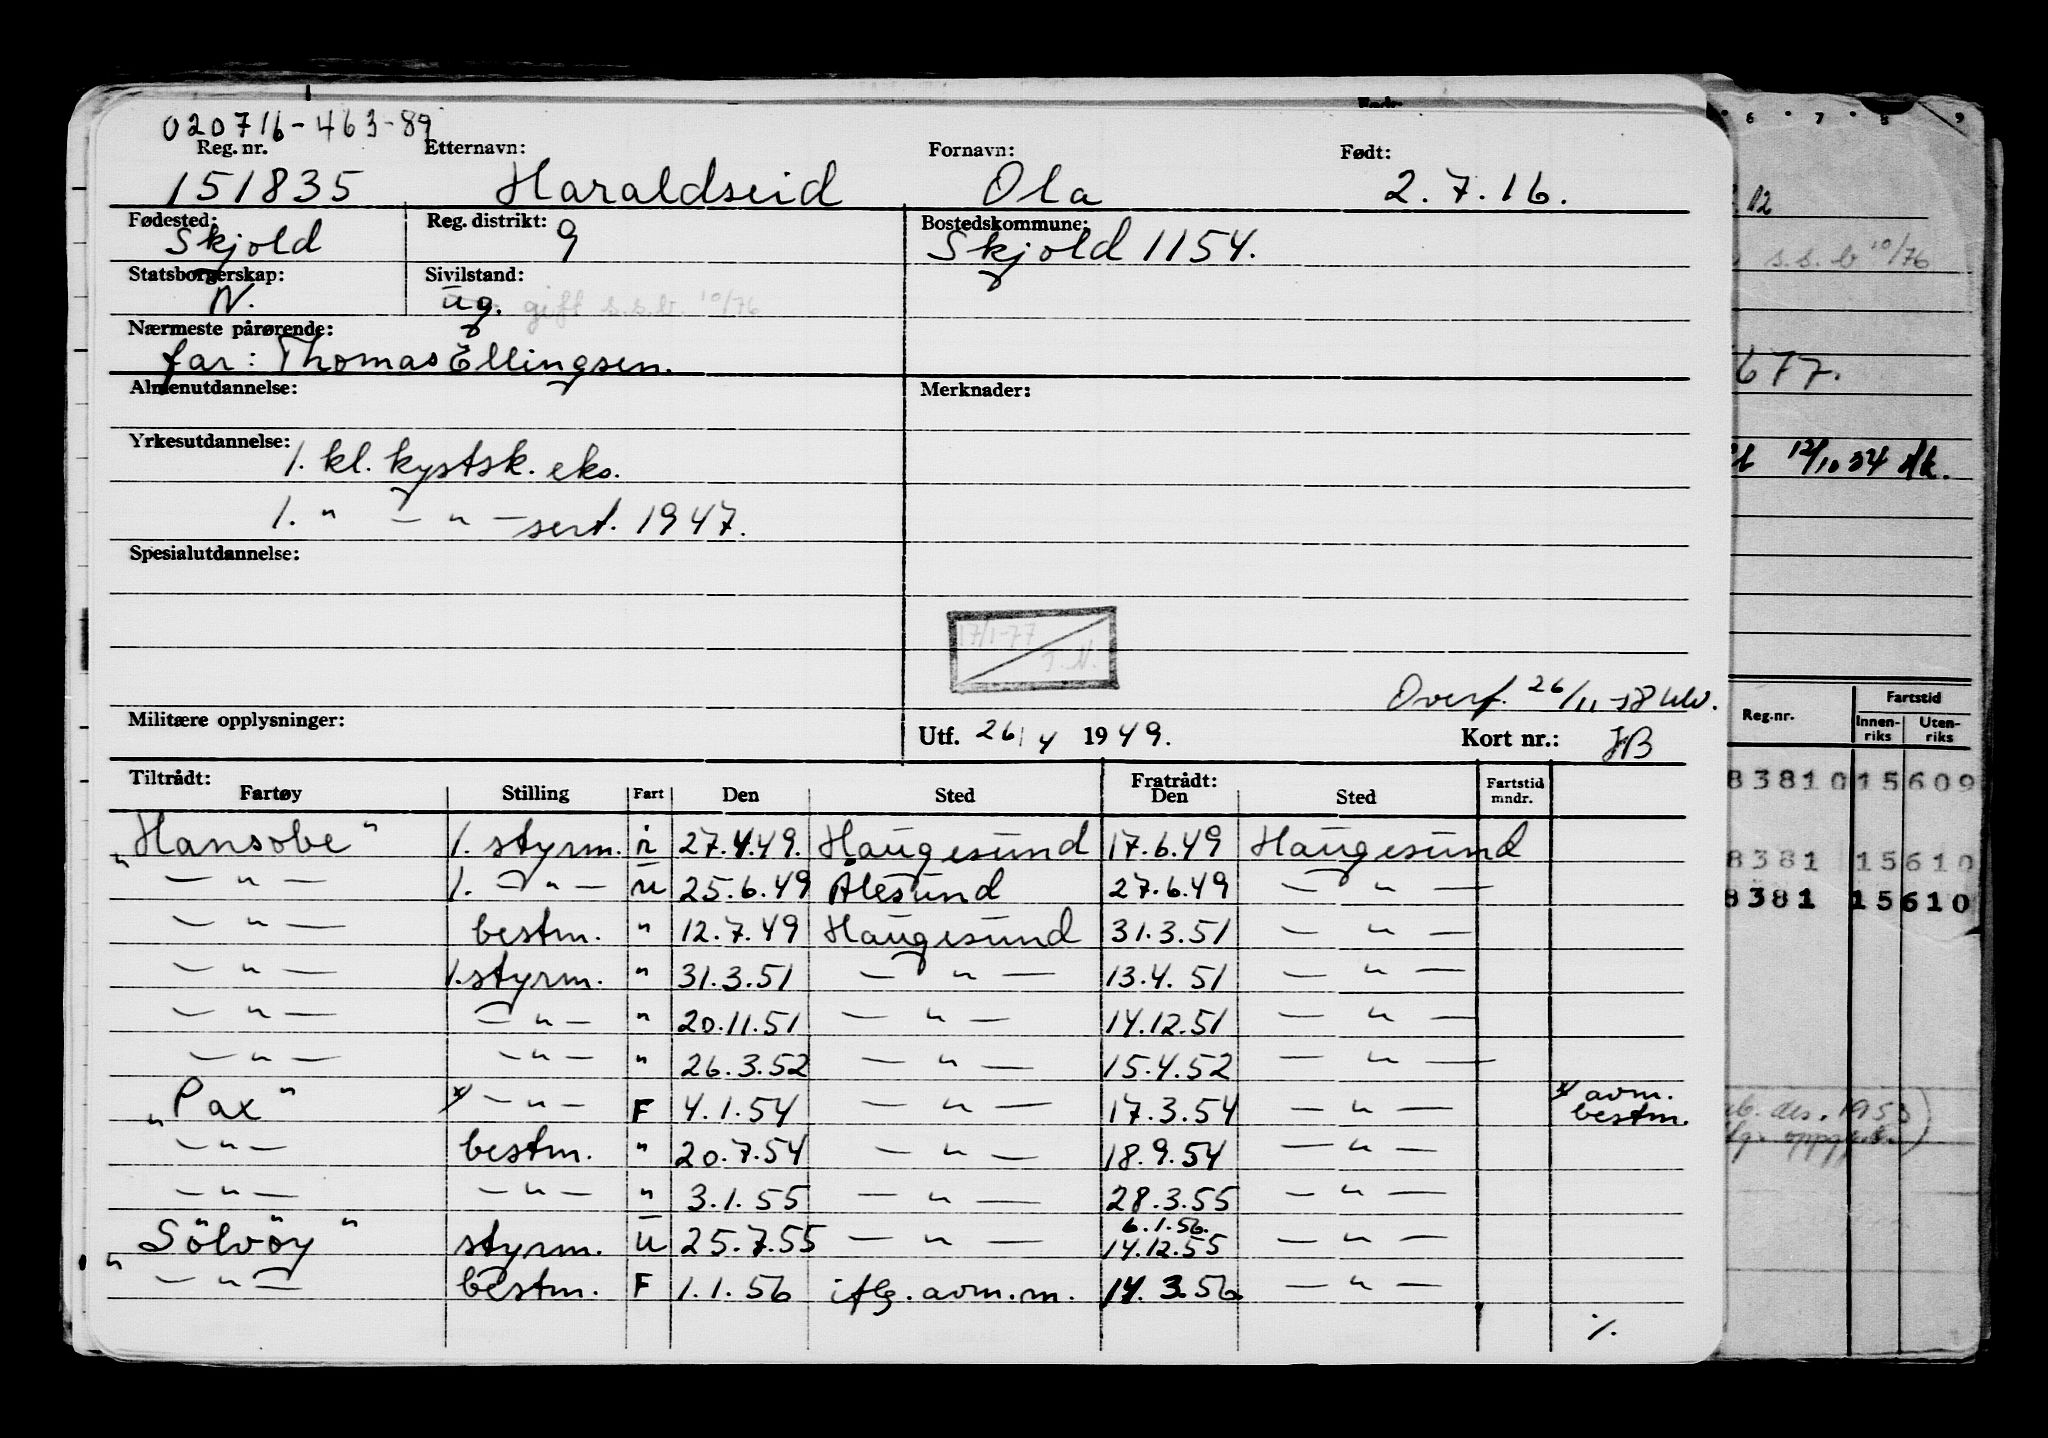 020716-463-89
Reg. nr. Etternavn: Fornavn: Født:
151835 Haraldseid Ola 2.7.16.
Fødested: Reg. distrikt: Bostedskommune:
Skjold 9 Skjold 1154.
Statsborgerskap: Sivilstand:
N. ug. gift s.s.b. 10/76
Nærmeste pårørende:
far: Thomas Ellingsen.
Almenutdannelse: Merknader:
Yrkesutdannelse:
1. kl. kystsk. eks.
1. " — " — sert. 1947.
Spesialutdannelse:
17/1-77
J.N.
Overf. 26/11-58
Militære opplysninger: Utf. 26/4 1949. Kort nr.: JB
Tiltrådt: Fratrådt:
Fartøy Stilling Fart Den Sted Den Sted Fartstid mndr.
"Hansobe" 1. styrm. i 27.4.49. Haugesund 17.6.49 Haugesund
— " — 1. — " — u 25.6.49 Ålesund 27.6.49 — " —
— " — bestm. " 12.7.49 Haugesund 31.3.51 — " —
— " — 1. styrm. " 31.3.51 — " — 13.4.51 — " —
— " — — " — " 20.11.51 — " — 14.12.51 — " —
— " — — " — " 26.3.52 — " — 15.4.52 — " —
"Pax" x — " — F 4.1.54 — " — 17.3.54 — " — x avm. bestm.
— " — bestm. " 20.7.54 — " — 18.9.54 — " —
— " — — " — " 3.1.55 — " — 28.3.55 — " —
6.1.56.
"Sölvöy" styrm. u 25.7.55 — " — 14.12.55 — " —
— " — bestm. F 1.1.56 iflg. avm.m. 14.3.56. — " —
./.
6 7 8 9
12
s.s.b 10/76
677.
12/10 54
Reg.nr. Fartstid
Innen-riks Uten-riks
83810 15609
8381 15610
8381 15610
des. 1953)